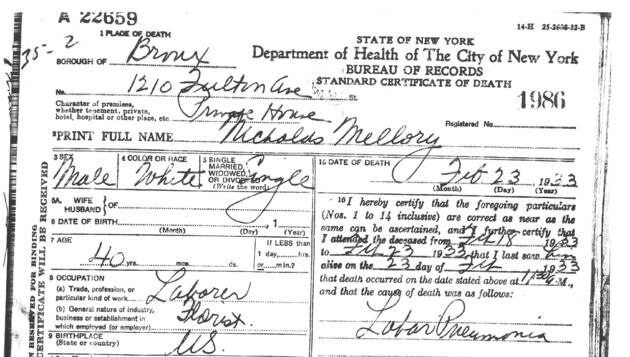 A 22659
14-H 25-2608-32-B
1 PLACE OF DEATH
STATE OF NEW YORK
35-2
BOROUGH OF Bronx
Department of Health of The City of New York
BUREAU OF RECORDS
No. 1210 Fulton Ave St.
STANDARD CERTIFICATE OF DEATH
Character of premises,
whether tenement, private,
hotel, hospital or other place, etc. Private House
1986
Registered No.
2 PRINT FULL NAME Nicholas Mellory
3 SEX
Male
4 COLOR OR RACE
White
5 SINGLE
MARRIED,
WIDOWED,
OR DIVORCED
(Write the word)
Single
15 DATE OF DEATH
Feb 23 1933
(Month) (Day) (Year)
5A WIFE
HUSBAND } OF
6 DATE OF BIRTH
(Month) (Day) (Year)
7 AGE
40 yrs. mos. ds.
If LESS than
1 day, hrs.
or min.?
8 OCCUPATION
(a) Trade, profession, or
particular kind of work Laborer
(b) General nature of industry,
business or establishment in
which employed (or employer) Florist
9 BIRTHPLACE
(State or country) U.S.
16 I hereby certify that the foregoing particulars
(Nos. 1 to 14 inclusive) are correct as near as the
same can be ascertained, and I further certify that
I attended the deceased from Feb 18 1933
to Feb 23 1933 that I last saw him
alive on the 23 day of Feb 1933
that death occurred on the date stated above at M.,
and that the cause of death was as follows:
Lobar Pneumonia
N RESERVED FOR BINDING
CERTIFICATE WILL BE RECEIVED